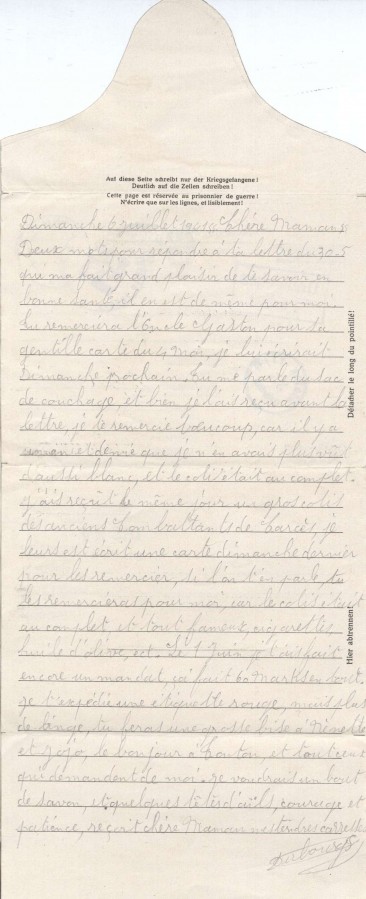 Auf diese Seite schreibt nur der Kriegsgefangene!
Deutlich auf die Zeilen schreiben!
Cette page est réservée au prisonnier de guerre!
N'écrire que sur les lignes, et lisiblement!
Dimanche 6 juillet Chère Maman
Deux mots pour réponse à ta lettre du 30-5
que ma fait grand plaisir de te savoir en
bonne santé, il en est de même pour moi
tu remerciera l'Oncle Gaston pour sa
gentille carte du 4 Mai, je lui écrirait
Dimanche prochain, tu me parle du sac
de couchage, et bien je l'ais reçu avant ta
lettre, je te remercie beaucoup, car il y a
un an et demie que je n'en avais plus vu
d'aussi blanc, et le colis était au complet.
J'ais reçu le même jour un gros colis
des anciens Combattants de Carcès, je
leurs est écrit une carte dimanche dernier
pour les remercier, si l'on t'en parle, tu
les remercieras pour moi, car le colis était
au complet et tout fameux, cigarettes,
huile d'olive, ect. Le 1 Juin j't'ais fait
encore un mandat, ça fait 60 Marks en tout.
Je t'expédie une etiquette rouge, mais plus
de linge, tu feras une grosse bise à
et Jojo, le bonjour à Tonton, et tout ceux
qui demandent de moi. Je voudrais un bout
de savon, et quelques têtes d'ails, courage et
patience, reçoit chère Maman mes tendres caresses
Détacher le long du pointillé!
Hier abtrennen!